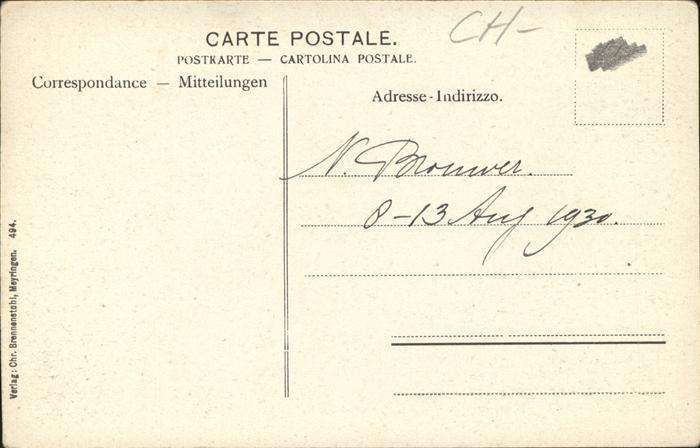 CARTE POSTALE.
CH-
POSTKARTE — CARTOLINA POSTALE.
Correspondance — Mitteilungen
Adresse-Indirizzo.
N. Bronwer.
8-13 Aug 1930.
Verlag: Chr. Brennenstuhl, Meyringen. 494.